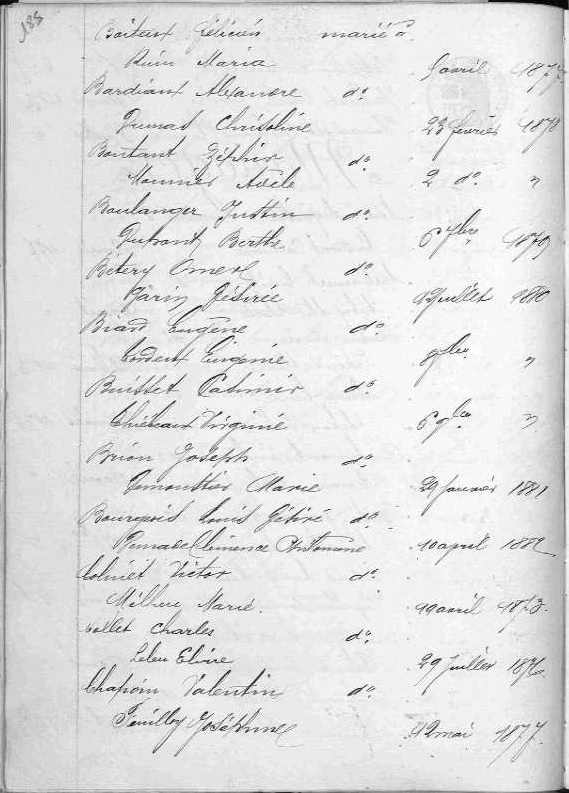 185
Boiteux Félicien marié à
Ruin Maria 9 avril 1877
Bardiaux Alexandre do
Dumas Christine 23 février 1878
Boutant Zéphir do
Mounier Adèle 2 do "
Boulanger Justin do
Dufrant Berthe 6 7bre 1879
Bétery Omer do
Garin Désirée 12 juillet 1880
Biard Eugène do
Cordeux Eugénie "
Buisset Casimir do
Virginie 6 9bre "
Brion Joseph do
Demoustier Marie 29 janvier 1881
Bourgeois Louis Désiré do
Clémence Antonine 10 april 1882
Colinet Victor do
Marie 19 avril 1873.
Collet Charles do
Leleu Elvire 29 juillet 1876
Chapoin Valentin do
Feuilloy Joséphine 12 mai 1877.